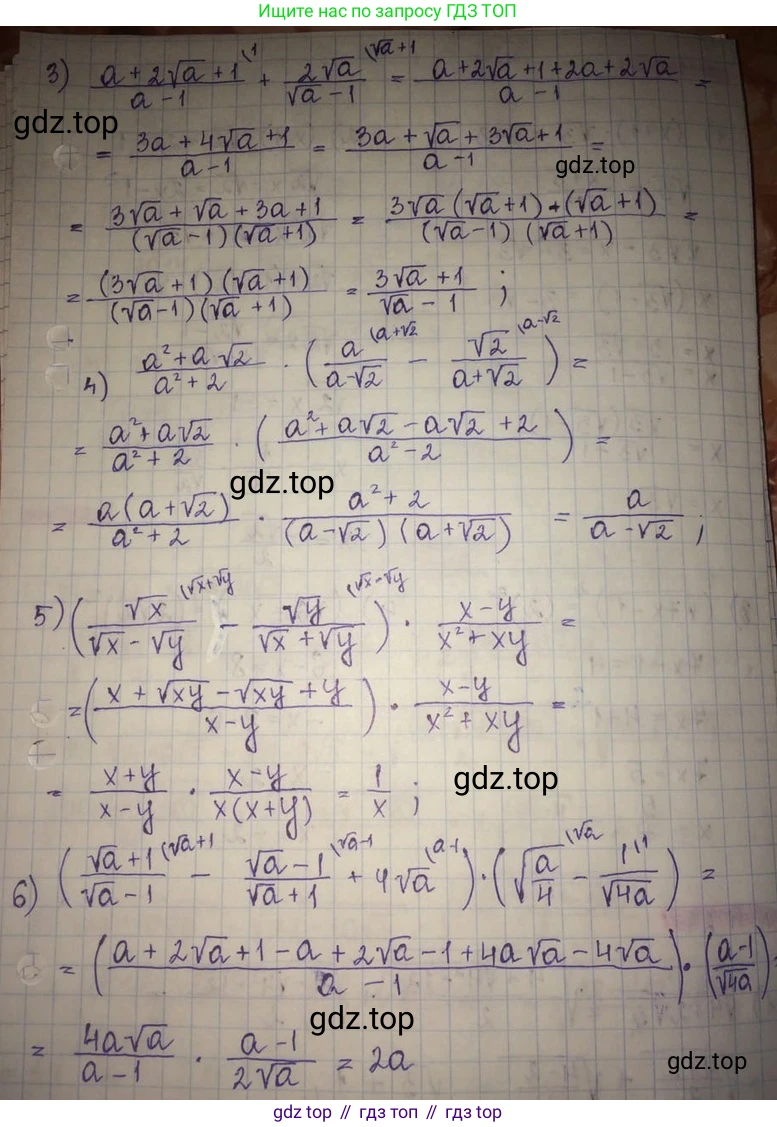 Ищите нас по запросу ГДЗ ТОП
3) (a + 2√a + 1)/(a - 1) (1 + 2√a/(√a - 1) (√a + 1 = (a + 2√a + 1 + 2a + 2√a)/(a - 1) =
gdz.top
= (3a + 4√a + 1)/(a - 1) = (3a + √a + 3√a + 1)/(a - 1) =
gdz.top
= (3√a + √a + 3a + 1)/((√a - 1)(√a + 1)) = (3√a(√a + 1) + (√a + 1))/((√a - 1)(√a + 1)) =
= ((3√a + 1)(√a + 1))/((√a - 1)(√a + 1)) = (3√a + 1)/(√a - 1) ;
4) (a² + a√2)/(a² + 2) · (a/(a - √2) (a + √2 - √2/(a + √2) (a - √2) =
= (a² + a√2)/(a² + 2) · ((a² + a√2 - a√2 + 2)/(a² - 2)) =
gdz.top
= a(a + √2)/(a² + 2) · (a² + 2)/((a - √2)(a + √2)) = a/(a - √2) ;
5) (√x/(√x - √y) (√x + √y - √y/(√x + √y) (√x - √y) · (x - y)/(x² + xy) =
= ((x + √xy - √xy + y)/(x - y)) · (x - y)/(x² + xy) =
= (x + y)/(x - y) · (x - y)/(x(x + y)) = 1/x ;
gdz.top
6) ((√a + 1)/(√a - 1) (√a + 1 - (√a - 1)/(√a + 1) (√a - 1 + 4√a (a - 1) · (√(a/4) (√a - 1/√4a (1) =
= ((a + 2√a + 1 - a + 2√a - 1 + 4a√a - 4√a)/(a - 1)) · ((a - 1)/√4a)
gdz.top
= 4a√a/(a - 1) · (a - 1)/2√a = 2a
gdz.top
gdz top // гдз топ // gdz top